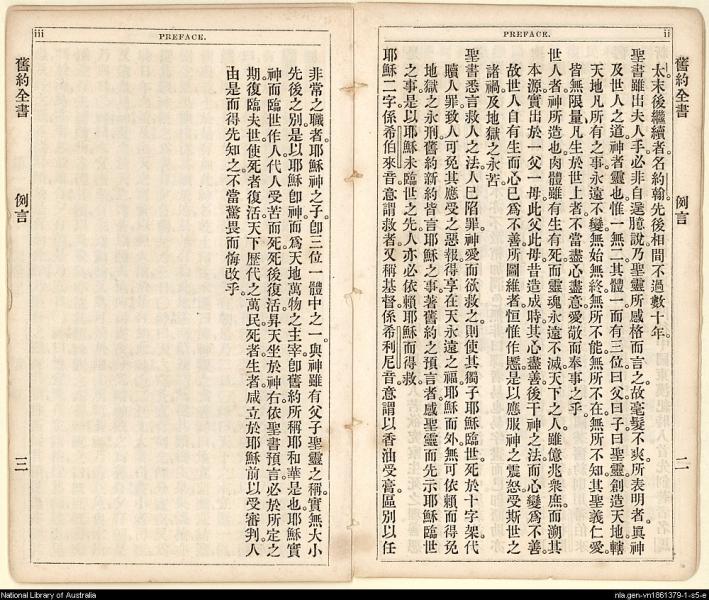 ii
PREFACE.
舊約全書 例言 二
太末後繼續者名約翰。先後相間不過數十年。
聖書雖出夫人手。必非自逞臆說。乃聖靈所感格而言之。故毫髮不爽。所表明者眞神
及世人之道。神者靈也。惟一無二。其體一而有三位。曰父曰子曰聖靈。創造天地。轄
天地凡所有之事。永遠不變。無始無終。無所不能。無所不在。無所不知。其聖義仁愛
皆無限量。凡生於世上者。不當盡心盡意愛敬而奉事之乎。
世人者神所造也。肉體雖有生有死。而靈魂永遠不滅。天下之人。雖億兆衆庶。而溯其
本源。實出於一父一母。此父此母。昔造成時。其心盡善。後干神之法。而心變爲不善。
故世人自有生而心已爲不善。所圖維者。恒惟作慝。是以應服神之震怒。受斯世之
諸禍及地獄之永苦。
聖書悉言救人之法。人已陷罪。神愛而欲救之。則使其獨子耶穌臨世。死於十字架。代
贖人罪。致人可免其應受之惡報。得享在天永遠之福。耶穌而外。無可依賴而得免
地獄之永刑。舊約新約皆言耶穌之事。著舊約之預言者。感聖靈而先示耶穌臨世
之事。是以耶穌未臨世之先。人亦必依賴耶穌而得救。
耶穌二字。係希伯來音。意謂救者。又稱基督。係希利尼音。意謂以香油受膏。區別以任
iii
PREFACE.
非常之職者。耶穌神之子。卽三位一體中之一。與神雖有父子聖靈之稱。實無大小
先後之別。是以耶穌卽神而爲天地萬物之主宰。卽舊約所稱耶和華是也。耶穌實
神而臨世作人。代人受苦而死。死後復活昇天。坐於神右。依聖書預言。必於所定之
期。復臨夫世。使死者復活。天下歷代之萬民。死者生者。咸立於耶穌前。以受審判。人
由是而得先知之。不當驚畏而悔改乎。
舊約全書 例言 三
National Library of Australia
nla.gen-vn1861379-1-s5-e